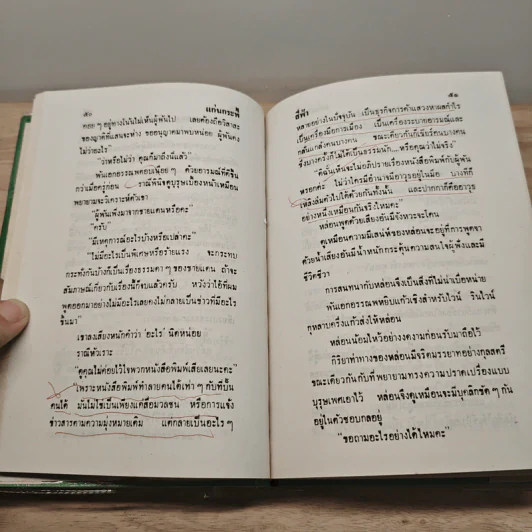 ๕๐
แก่นกระพี้
คอย ๆ อยู่ทางโน้นไม่เห็นผู้พันไป เลยต้องถือวิสาสะ
ของญาติที่แสนจะห่าง ขออนุญาตมาพบหน่อย ผู้พันคง
ไม่ว่าอะไร”
“ว่าหรือไม่ว่า คุณก็มาถึงนี่แล้ว”
พันเอกธรรมพลตอบเนือย ๆ ด้วยอารมณ์ที่ดีขึ้น
กว่าเมื่อครู่ก่อน ราณีพินิจดูบุรุษเบื้องหน้าเหมือน
พยายามจะวิเคราะห์ตัวเขา
“ผู้พันเพิ่งมาจากชายแดนหรือคะ”
“ครับ”
“มีเหตุการณ์อะไรบ้างหรือเปล่าคะ”
“ไม่มีอะไรเป็นพิเศษหรือร้ายแรง จะกระทบ
กระทั่งกันบ้างก็เป็นเรื่องธรรมดา ๆ ของชายแดน ถ้าจะ
สัมภาษณ์เกี่ยวกับเรื่องนี้ก็จบแล้วครับ หวังว่าไอ้ที่ผม
พูดออกมาอย่างไม่มีอะไรเลยคงไม่กลายเป็นข่าวที่มีอะไร
ขึ้นมา”
เขาลงเสียงหนักคำว่า ‘อะไร’ นิดหน่อย
ราณีหัวเราะ
“ดูคุณไม่ค่อยไว้ใจพวกหนังสือพิมพ์เสียเลยนะคะ”
“เพราะหนังสือพิมพ์ทำลายคนได้เท่า ๆ กับที่ปั้น
คนได้ มันไม่ใช่เป็นเพียงแค่สื่อมวลชน หรือการแจ้ง
ข่าวสารตามความมุ่งหมายเดิม แต่กลายเป็นอะไร ๆ
สีฟ้า
๕๑
หลายอย่างในปัจจุบัน เป็นธุรกิจการค้าแสวงหาผลกำไร
เป็นเครื่องมือการเมือง เป็นเครื่องระบายอารมณ์และ
กลั่นแกล้งคนบางคน ขณะเดียวกันก็เชียร์คนบางคน
ซึ่งบางครั้งก็ไม่ได้เป็นธรรมนัก...หรือคุณว่าไม่จริง”
“ดิฉันเห็นจะไม่อภิปรายเรื่องหนังสือพิมพ์กับผู้พัน
หรอกค่ะ ไม่ว่าใครมีอำนาจมีอาวุธอยู่ในมือ บางทีก็
เหลิงลืมตัวไปได้ด้วยกันทั้งนั้น และปากกาก็คืออาวุธ
อย่างหนึ่งเหมือนกันจริงไหมคะ”
หล่อนพูดด้วยเสียงอันมีจังหวะจะโคน
ดูเหมือนความมีเสน่ห์ของหล่อนจะอยู่ที่การพูดจา
ด้วยน้ำเสียงอันมีน้ำหนักกระตุ้นความสนใจผู้ฟังและมี
ชีวิตชีวา
การสนทนากับหล่อนจึงเป็นสิ่งที่ไม่น่าเบื่อหน่าย
พันเอกธรรมพลหยิบแก้วเชิงสำหรับไวน์ รินไวน์
กุหลาบครึ่งแก้วส่งให้หล่อน
หล่อนน้อมไหว้อย่างงดงามก่อนรับมาถือไว้
กิริยาท่าทางของหล่อนมีจริตมรรยาทอย่างกุลสตรี
ขณะเดียวกันกับที่พยายามทรงความปราดเปรื่องแบบ
บุรุษเพศเอาไว้ หล่อนจึงดูเหมือนจะมีบุคลิกขัด ๆ กัน
อยู่ในตัวชอบกลอยู่
“ขอถามอะไรอย่างได้ไหมคะ”